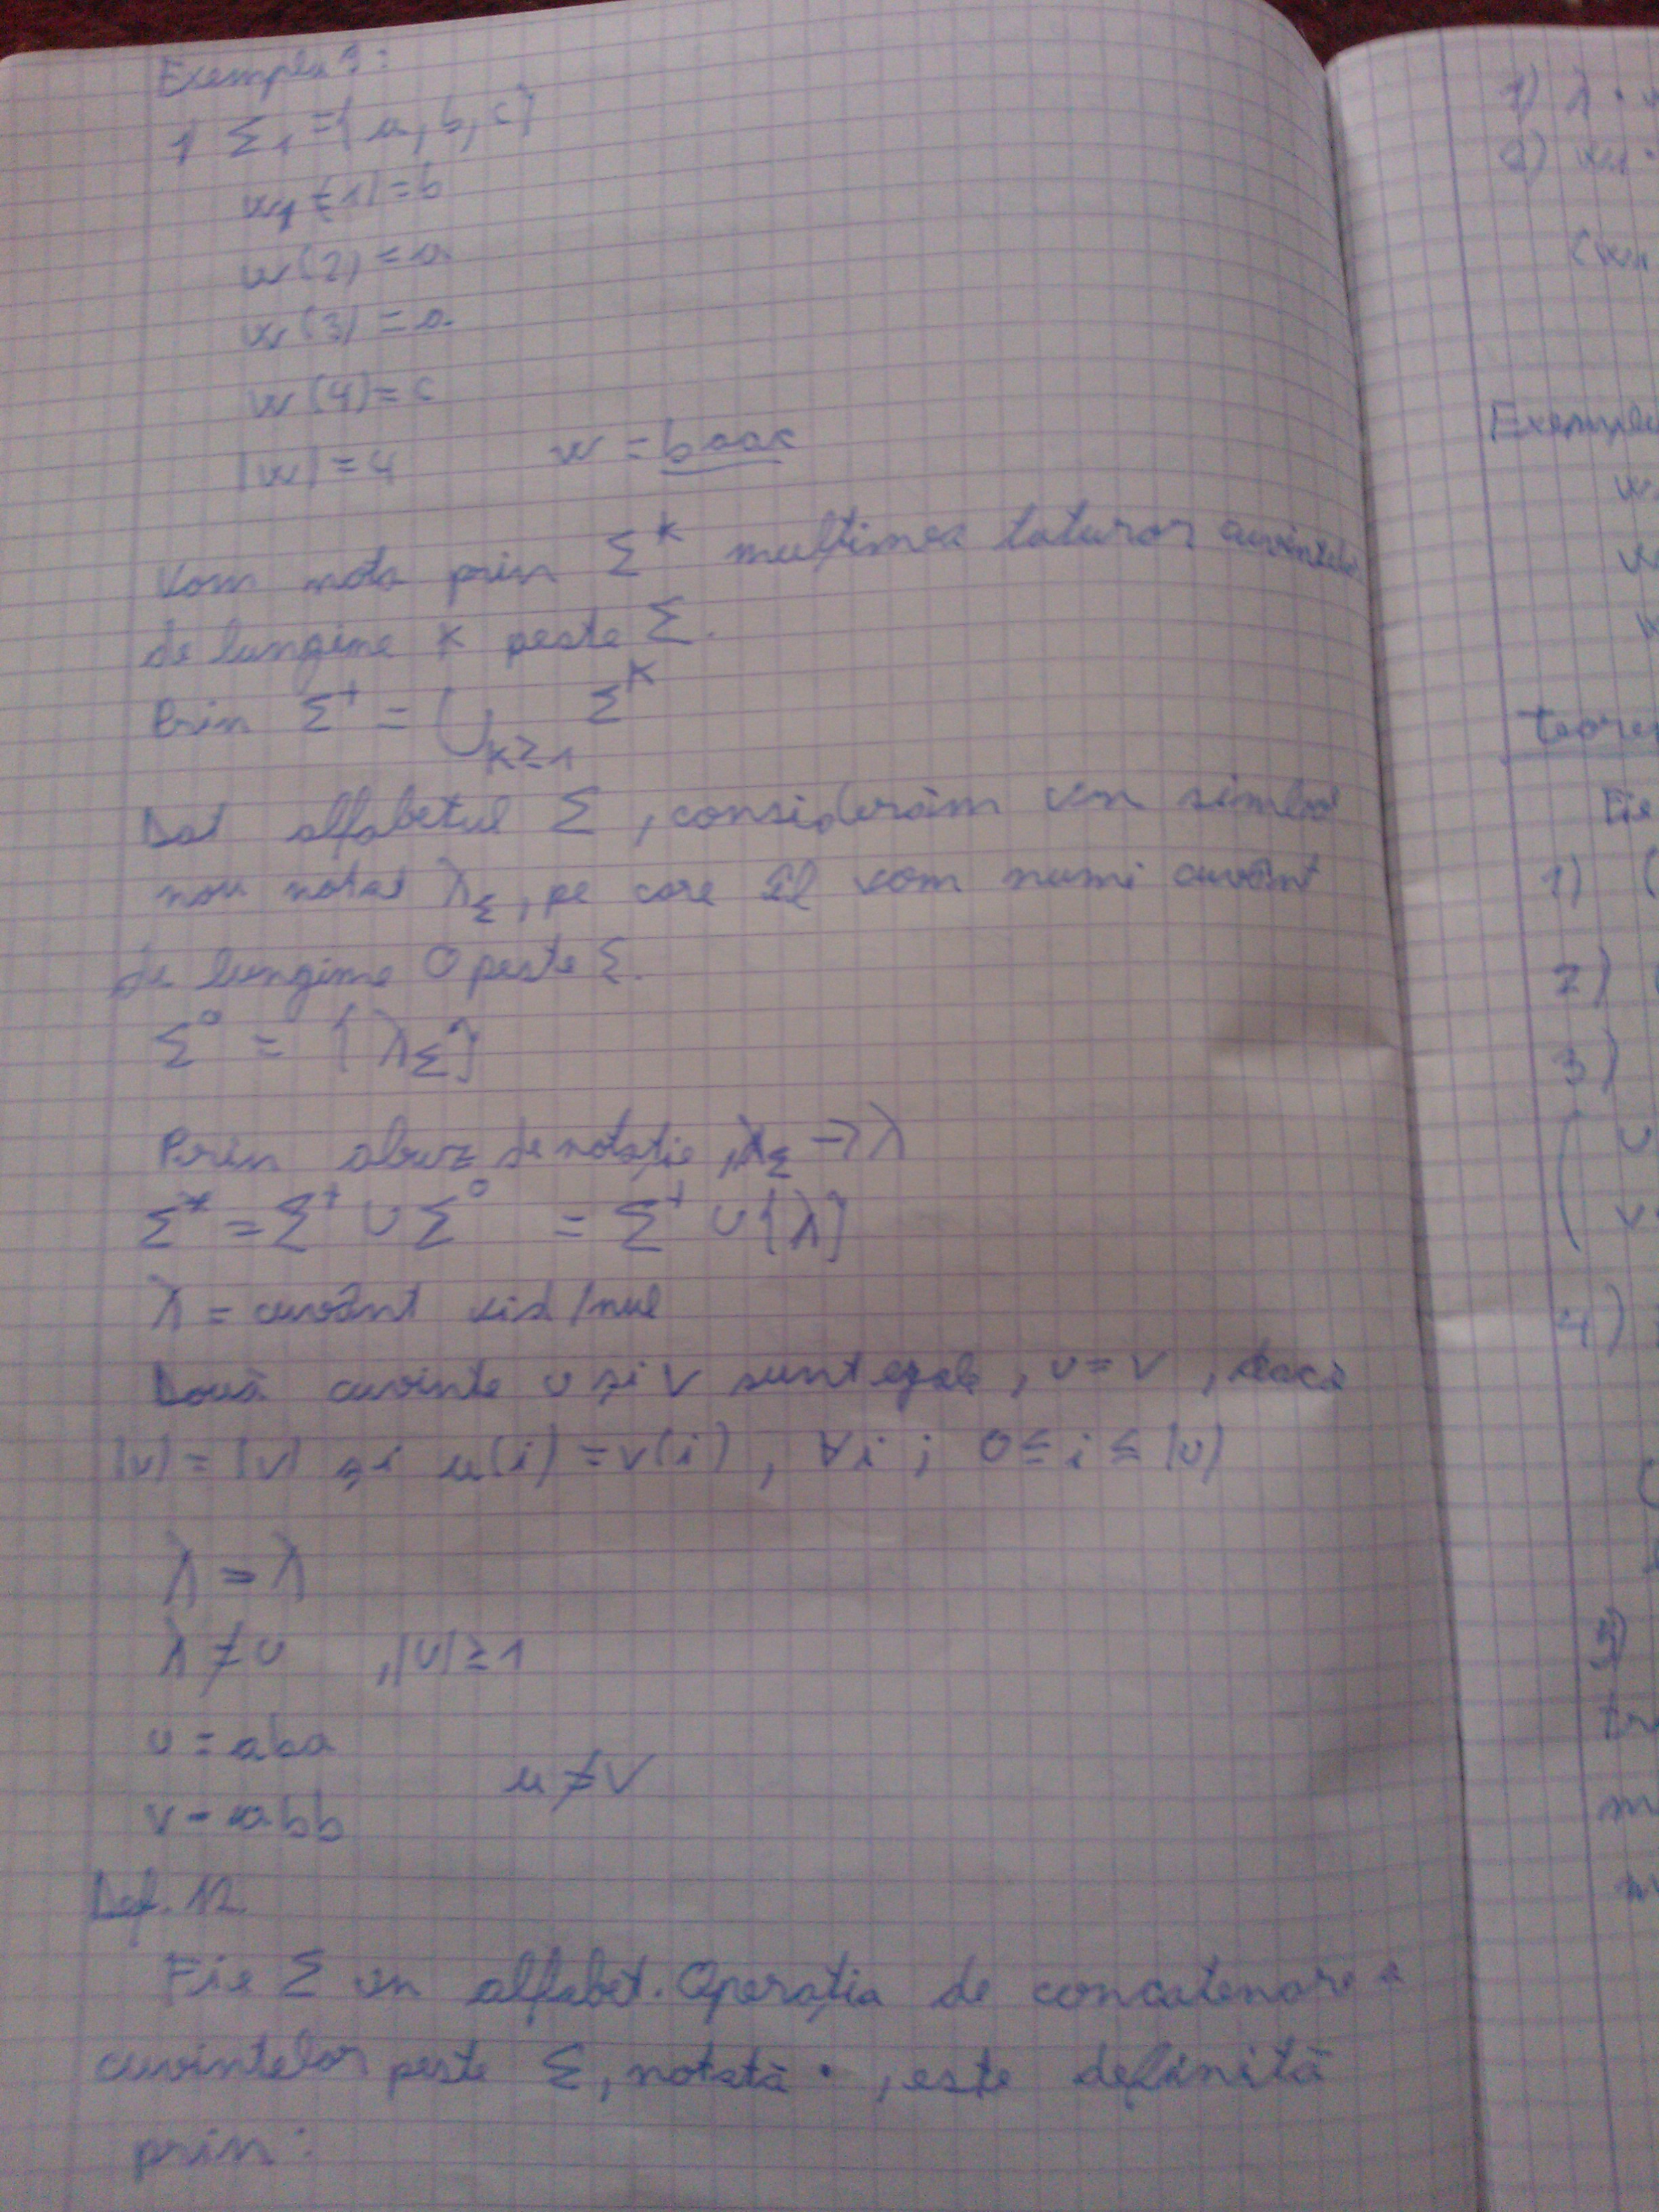 Exemplu 1:
1 Σ₁ = {a, b, c}
w₁(1) = b
w(2) = a
w(3) = a
w(4) = c
|w| = 4 w = baac
Vom nota prin Σᵏ mulțimea tuturor cuvintelor
de lungime k peste Σ.
Prin Σ⁺ = ∪ₖ≥₁ Σᵏ
Dat alfabetul Σ, considerăm un simbol
nou notat λ_Σ, pe care îl vom numi cuvânt
de lungime 0 peste Σ.
Σ⁰ = {λ_Σ}
Prin abuz de notație, λ_Σ → λ
Σ* = Σ⁺ ∪ Σ⁰ = Σ⁺ ∪ {λ}
λ = cuvânt vid/nul
Două cuvinte u și v sunt egale, u = v, dacă
|u| = |v| și u(i) = v(i), ∀i; 0 ≤ i ≤ |u|
λ = λ
λ ≠ u , |u| ≥ 1
u = aba
u ≠ v
v = abb
Def. 12
Fie Σ un alfabet. Operația de concatenare a
cuvintelor peste Σ, notată ·, este definită
prin:
1) λ ·
2)
1)
2)
3)
4)
5)